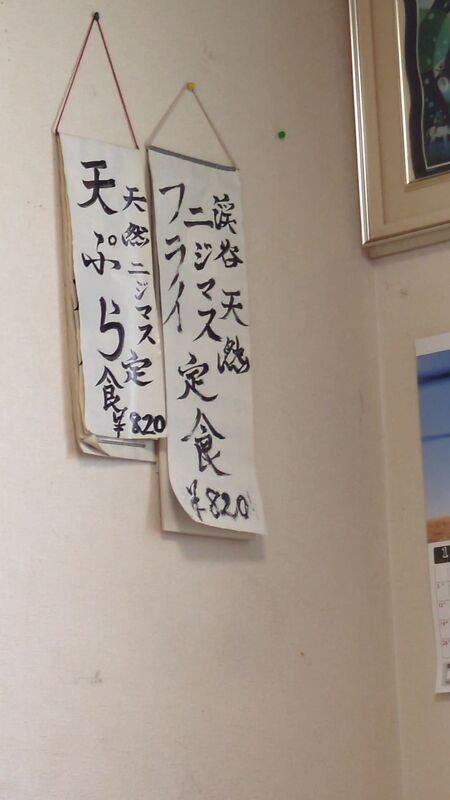 渓谷天然
ニジマス定食
フライ
¥820
天然ニジマス定
天ぷら食
¥820
1